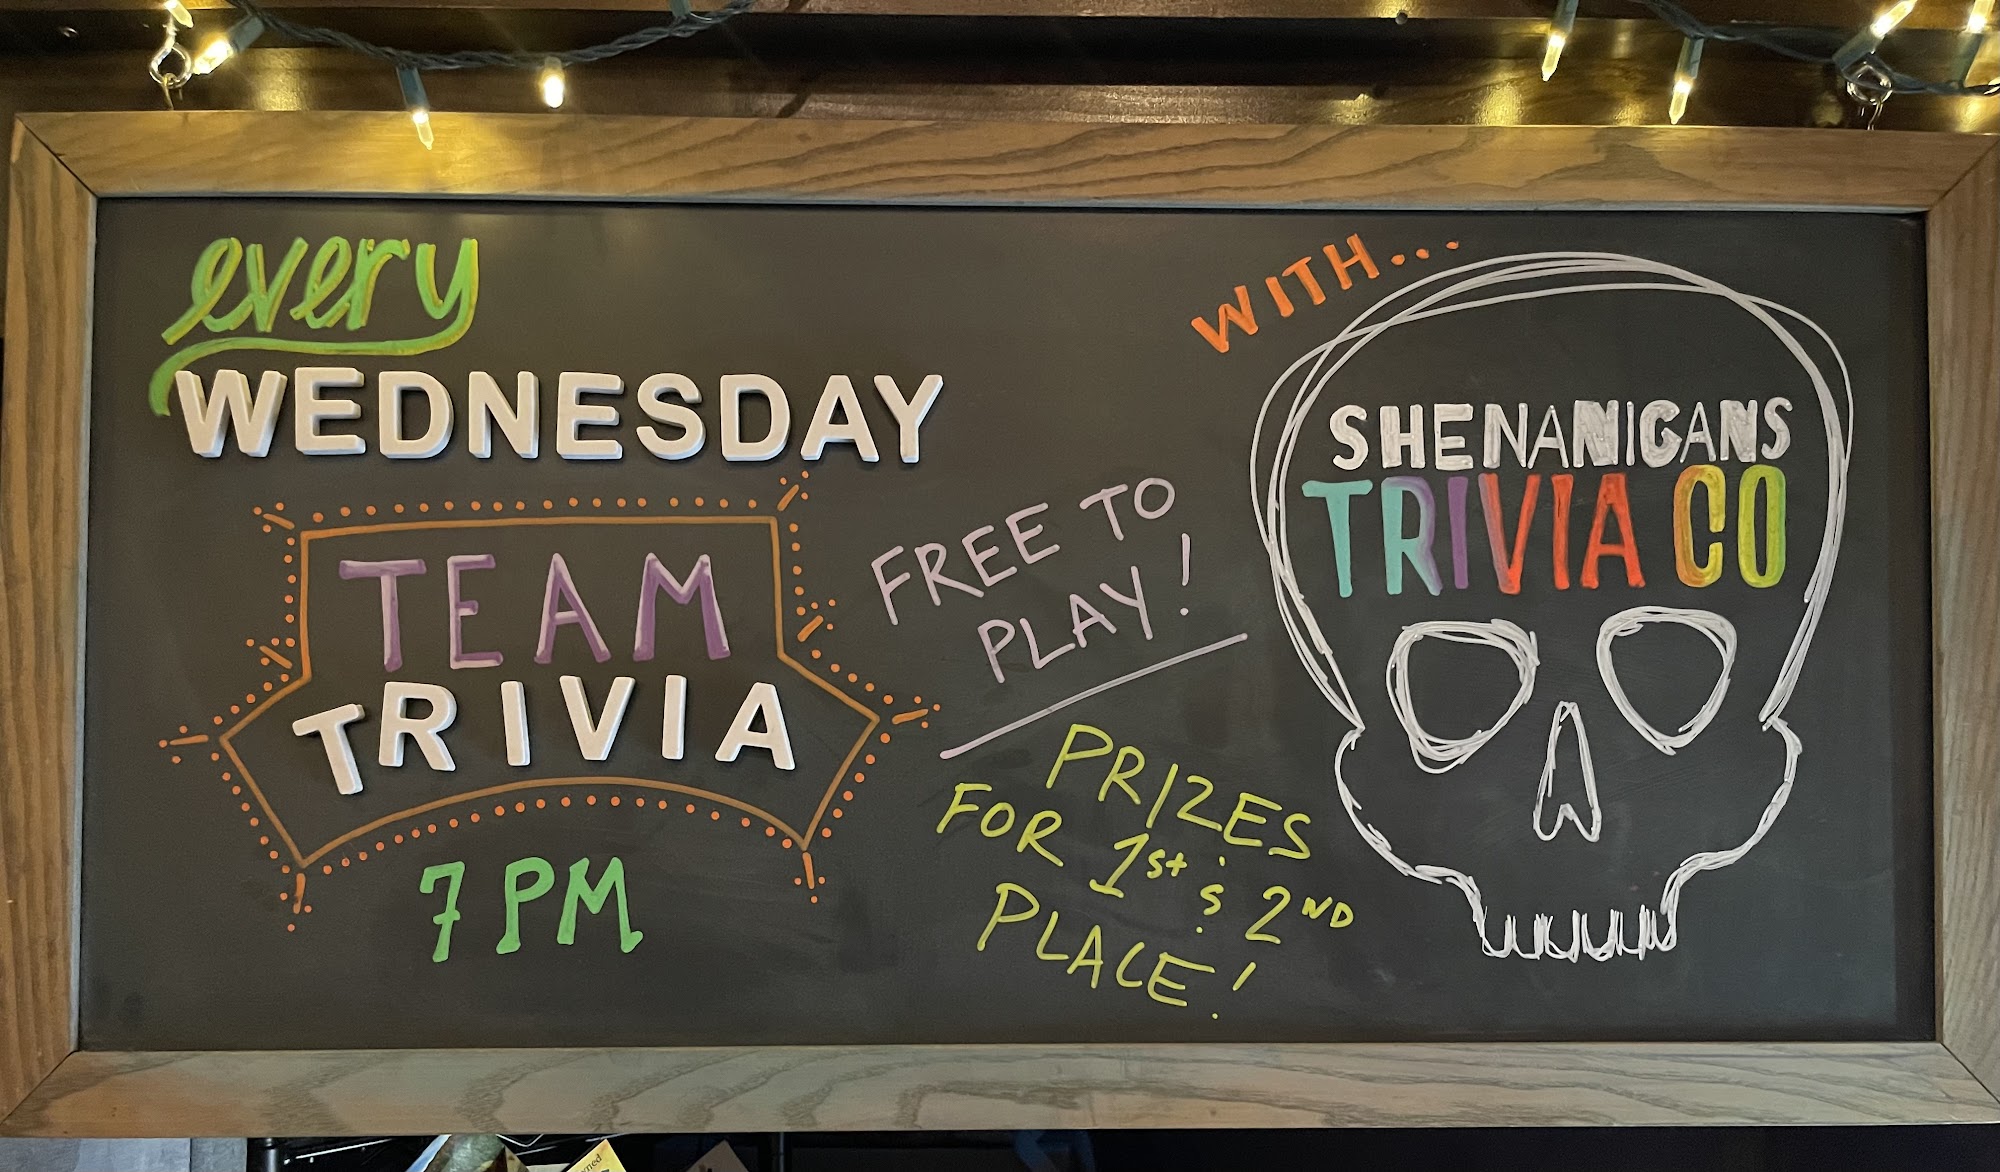 every
WEDNESDAY
TEAM
TRIVIA
7 PM
FREE TO
PLAY!
PRIZES
FOR 1st & 2ND
PLACE!
WITH...
SHENANIGANS
TRIVIA CO